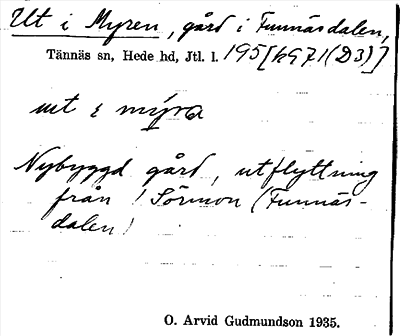 Ut i Myren, gård i Funnäsdalen,
Tännäs sn, Hede hd, Jtl. l. 195[6971(D3)]
ut i mýra
Nybyggd gård, utflyttning
från! Sörmon (Funnäs-
dalen!
O. Arvid Gudmundson 1935.